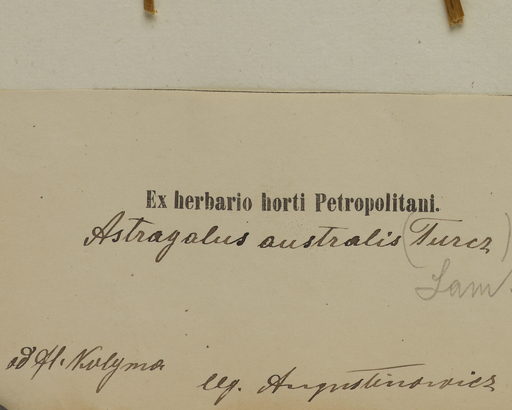 Ex herbario horti Petropolitani.
Astragalus australis (Turcz)
Lam.
ad fl. Kolyma
llg. Augustinowicz